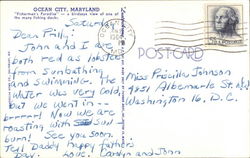 OCEAN CITY, MARYLAND
"Fisherman's Paradise" — a birdseye view of one of
the many fishing docks.
Saturday
Dear Prilly:
John and I are
both red as lobster
from sunbathing
and swimming. The
water was very cold
but we went in--
brrrrr! Now we are
roasting with sun
burn! See you soon.
Tell Daddy happy fathers
Day. Love: Carolyn and John
OCEAN CITY
POST CARD
Miss Priscilla Johnson
4851 Albemarle St. N.W.
Washington 16, D.C.